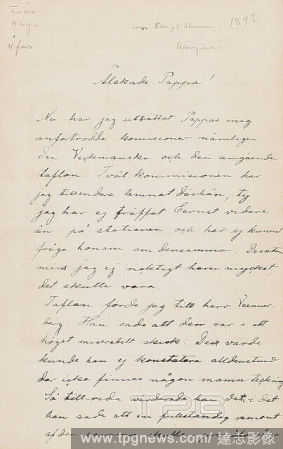 Från
1892
Älskade Pappa!
Nu har jag uträttat Pappas mig
anförtrodda komissioner nämligen
den Verkmanska och den angående
taflan. Tvål kommissionen har
jag tillsvidare lemnat därhän, ty
jag har ej träffat Ernst vidare
än på stationen, och har ej kunnat
fråga honom om densamma. Dessutom
mins jag ej noteligt huru mycket
det skulle vara.
Taflan förde jag till herr
berg. Han sade att den var i ett
högst miserabelt skick. Dess värde
kunde han ej konstatera alldenstund
där icke finnes någon namn teckning
Så till vida värderade han det, i det
han sade att en fullständig remont
af den
TPG
www.tpgnews.com/達志影像